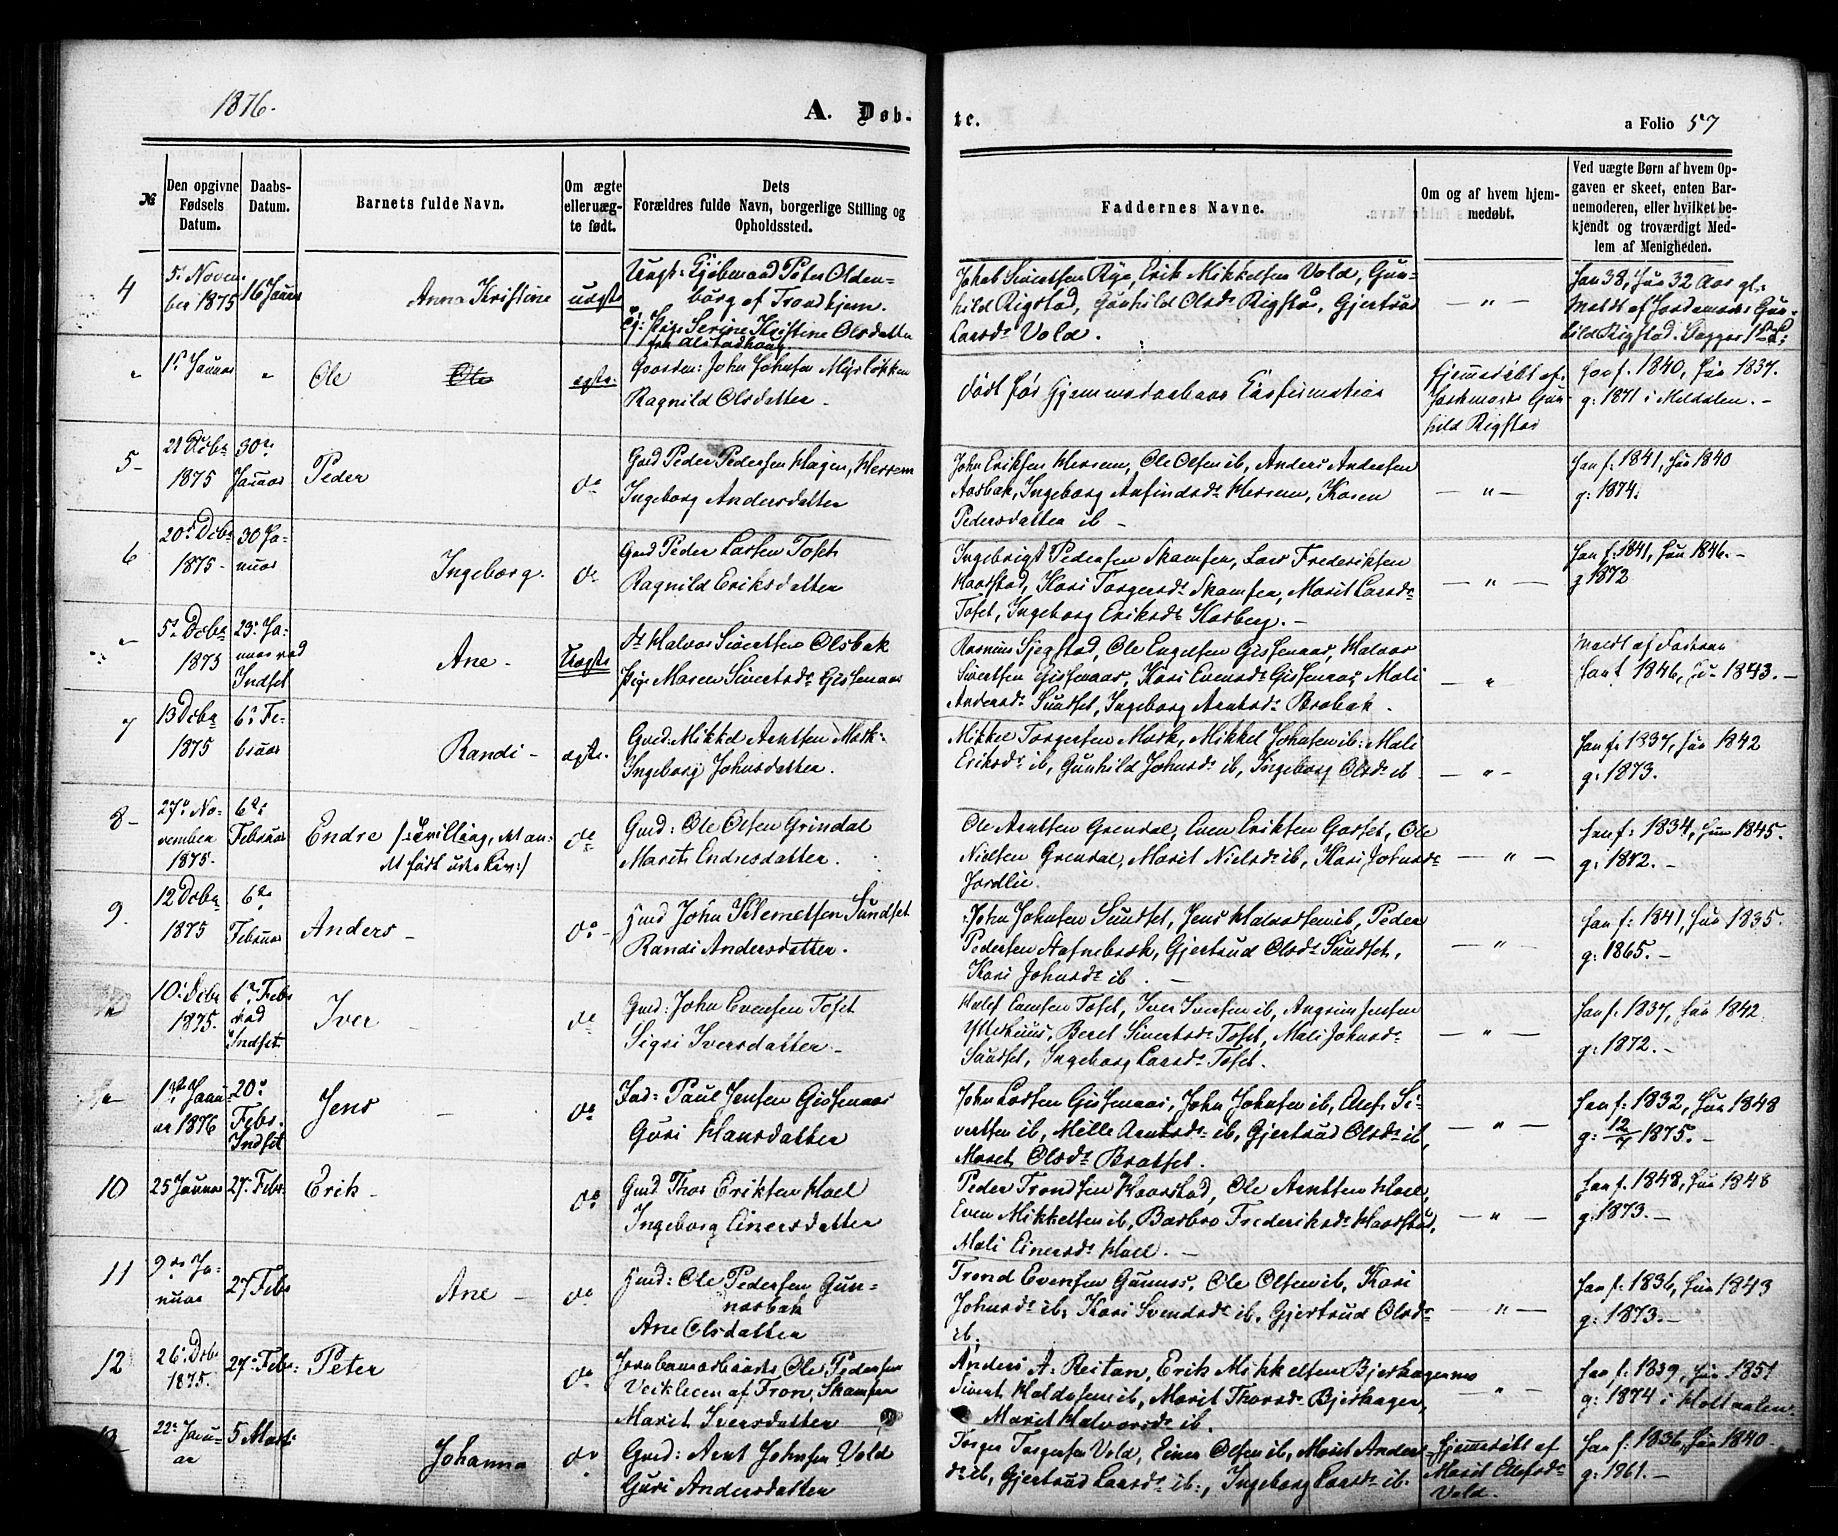 1876.
A. Døb-
te.
a Folio 57
№
Den opgivne Fødsels Datum.
Daabs-Datum.
Barnets fulde Navn.
Om ægte eller uæg-te født.
Dets Forældres fulde Navn, borgerlige Stilling og Opholdssted.
Faddernes Navne.
Om og af hvem hjem-medøbt.
Ved uægte Børn af hvem Op-gaven er skeet, enten Bar-nemoderen, eller hvilket be-kjendt og troværdigt Med-lem af Menigheden.
4
5. Novem-
ber 1875
16 Januar
Anna Kristine
uægte
Ungk: Kjøbmand Peter Olden-
borg af Trondhjem.
Pige Serine Kristine Olsdatter
fra Alstadhoug
Erik Mikkelsen Vold, Gun-
hild Rigstad, Gunhild Olsdr Rigstad, Gjertrud
Larsdr Vold.
— " —
Han 38, Hun 32 Aar gl.
Meldt af Jordemoder Gun-
hild Rigstad.
"
1st Januar
"
Ole
Ole
ægte.
John Johnsen
Ragnild Olsdatter —
født før Hjemmedaabens Confirmation
Hjemmedøbt af
Jordmoder Gun-
hild Rigstad
Han f. 1840, Hun 1837.
g: 1871 i Meldalen. —
5 —
21 Decbr
1875
30te
Januar
Peder
do
Gmd Peder Pedersen Hagen, Herrem
Ingeborg Andersdatter
John Eriksen Herrem, Ole Olsen ib, Anders Andersen
Aasbak, Ingeborg Arfindsdr Herrem, Karen
Pedersdatter ib —
— " —
Han f: 1841, Hun 1840
g: 1874.
6
20de Decbr
1875 —
30 Ja-
nuar
Ingeborg.
do
Gmd Peder Larsen Toset
Ragnild Eriksdatter
Ingebrigt Pedersen Skamfer, Lars Frederiksen
Haarstad, Kari Torgersdr Skamfer, Marit Larsdr
Toset, Ingeborg Eriksdr Hosberg. —
— " —
Han f. 1841, Hun 1846. —
g 1872
"
5te Decbr
1875
23: Ja-
nuar ved
Indset
Ane —
Uægte
Halvor Sivertsen Olsbak
Pige Maren Sivertsdr Gissenaas
Rasmus Sjegstad, Ole Engelsen Gissenaas, Halvor
Sivertsen Gissenaas, Kari Evensdr Gissenaas, Mali
Andersdr Sundset, Ingeborg Arntsdr Brobak.
"
Meldt af Farfar
Han f 1846, Hun 1843. —
7
13 Decbr
1875
6te Fe-
bruar
Randi —
ægte.
Gmd: Mikkel Arntsen Mærk:
Ingeborg Johnsdatter.
Mikkel Torgersen Mærk, Mikkel Johnsen ib: Mali
Eriksdr ib, Gunhild Johnsdr ib, Ingeborg Olsdr ib
— " —
Han f: 1837, Hun 1842
g: 1873.
8 —
27de No-
vember
1875.
6te
Februar
Endre (:Tvilling, et an-
det født uden Liv:)
do
Gmd: Ole Olsen Grindal
Marit Endresdatter.
Ole Arntsen Grendal, Even Eriksen Gorset, Ole
Nielsen Grendal, Marit Nielsdr ib, Kari Johnsdr
Jordlie.
— " —
Han f: 1834, Hun 1845.
g: 1872. —
9.
12 Decbr
1875
6te
Februar
Anders —
do —
Hmd John Klemetsen Sundset
Randi Andersdatter.
John Johnsen Sundset, Jens Halvorsen ib, Peder
Pedersen Stafnebrok, Gjertrud Olsdr Sundset,
Kari Johnsdr ib. —
— " —
Han f: 1841, Hun 1835.
g: 1865. —
10: Decbr
1875.
6te Febr
ved
Indset
Iver —
do
Gmd: John Evensen Toset
Sigri Iversdatter —
Halst Evensen Toset, Iver Iversen ib, Angrim Jensen
Ytterhuus, Beret Sivertsdr Toset, Mali Johnsdr
Sundset, Ingeborg Larsdr Toset.
— " —
Han f. 1837, Hun 1842
g: 1872. —
1ste Janu-
ar 1876
20de
Febr.
Indset
Jens —
do
Ind: Paul Jensen Gissenaas
Guri Hansdatter
John Larsen Gissenaas, John Johnsen ib, Olef Si-
vertsen ib, Mille Arntsdr ib, Gjertrud Olsdr ib,
Marit Olsdr Bratset.
— " —
Han f: 1832, Hun 1848
g: 12/7 1875. —
10
25 Januar
27. Febr.
Erik —
do
Gmd Thor Eriksen Hoel
Ingeborg Einersdatter
Peder Trondsen Haarstad, Ole Arntsen Hoel,
Even Mikkelsen ib, Barbro Frederiksdr Haarstad,
Mali Einersdr Hoel. —
— " —
Han f. 1848, Hun 1848
g: 1873. —
11
9de Ja-
nuar
27 Febr
Ane —
do
Hmd: Ole Pedersen Gun-
nesbak
Ane Olsdatter
Trond Evensen Gunnes, Ole Olsen ib, Kari
Johnsdr ib, Kari Svendsdr ib, Gjertrud Olsdr
ib.
— " —
Han f: 1836, Hun 1843
g: 1873. —
12
26: Dcbr
1875.
27: Febr:
Peter
do
Jernbanearbeider Ole Pedersen
Veiklien af Tron, Skamfer
Marit Iversdatter
Anders A. Reitan, Erik Mikkelsen Bjerkagernes
Sivert Haldosen ib, Marit Thorsdr Bjerkager,
Marit Halvorsdr ib.
"
Han f: 1839, Hun 1851
g: 1874 i Holtaalen.
22de Janu-
ar
5 Marts
Johanna
do
Gmd: Arnt Johnsen Vold
Guri Andersdatter
Torger Torgersen Vold, Einer Olsen ib, Marit Anders-
dr ib, Gjertrud Larsdr ib:, Ingeborg Larsdr ib.
Hjemmedøbt af
Marit Olefsdr
Vold.
Han f: 1836, Hun 1840
g: 1861. —